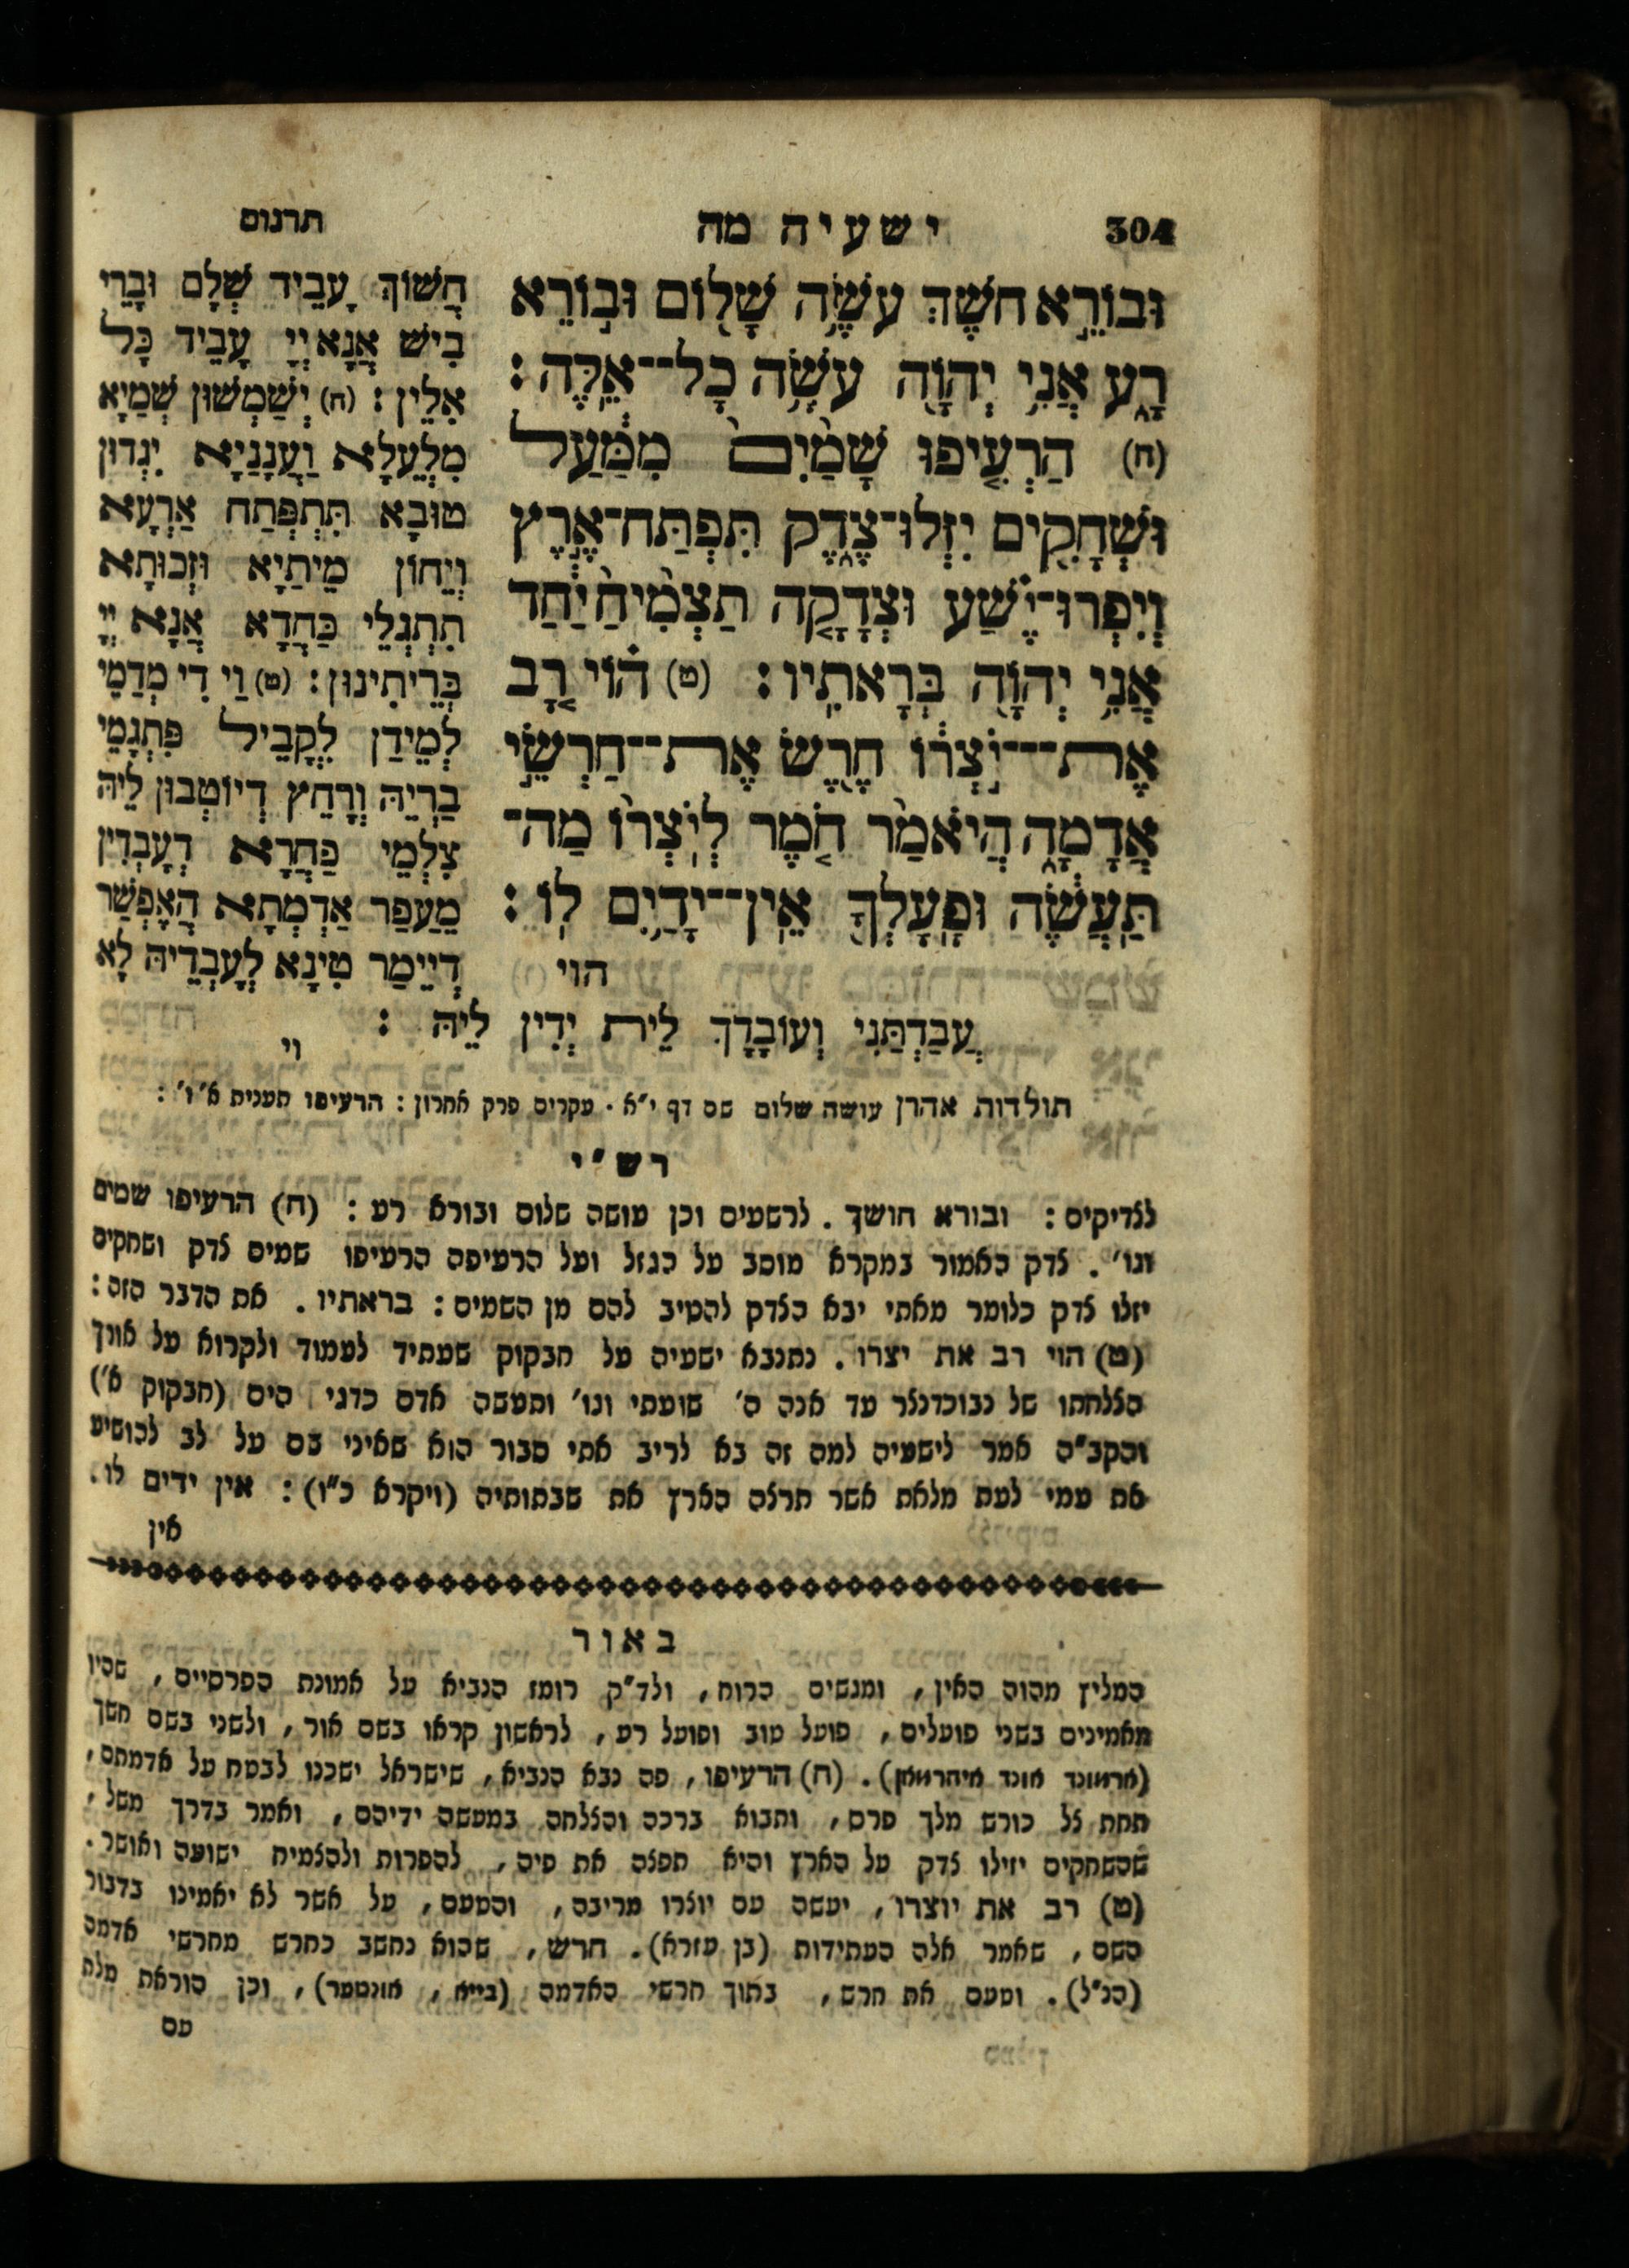 304
ישעיה מה
תרגום
וּבוֹרֵ֣א חשֶׁ֔ךְ עשֶׂ֥ה שָׁל֖וֹם וּב֣וֹרֵא
רָ֑ע אֲנִ֥י יְהוָ֖ה עשֶׂ֥ה כָל־אֵֽלֶּה׃
(ח) הַרְעִ֤יפוּ שָׁמַ֙יִם֙ מִמַּ֔עַל
וּשְׁחָקִ֖ים יִזְּלוּ־צֶ֑דֶק תִּפְתַּח־אֶ֣רֶץ
וְיִפְרוּ־יֶ֗שַׁע וּצְדָקָ֤ה תַצְמִ֙יחַ֙ יַ֔חַד
אֲנִ֥י יְהוָ֖ה בְּרָאתִֽיו׃ (ט) ה֗וֹי רָ֚ב
אֶת־יֹ֣צְר֔וֹ חֶ֖רֶשׂ אֶת־חַרְשֵׂ֣י
אֲדָמָ֑ה הֲיֹאמַ֨ר חֹ֤מֶר לְיֹֽצְרוֹ֙ מַה־
תַּֽעֲשֶׂ֔ה וּפָֽעָלְךָ֖ אֵֽין־יָדַ֥יִם לֽוֹ׃
הוי
חֲשׁוֹךְ עָבֵיד שְׁלָם וּבָרֵי
בִישׁ אֲנָא יְיָ עָבֵיד כָּל
אִלֵין: (ח) יְשַׁמְשׁוּן שְׁמַיָא
מִלְעֵלָא וַעֲנָנַיָא יִנְדוּן
טוּבָא תִּתְפְּתַח אַרְעָא
וְיֵחוֹן מֵיתַיָא וּזְכוּתָא
תִתְגְלֵי כַּחֲדָא אֲנָא יְיָ
בְּרֵיתִינוּן: (ט) וַי דִי מְדַמֵי
לְמֵידַן לֳקֳבֵיל פִּתְגָמֵי
בַרְיֵהּ וְרָחֵץ דְיוֹטְבוּן לֵיהּ
צַלְמֵי פַּחֲרָא דְעָבְדִין
מֵעֲפַר אַדְמְתָא הֲאֶפְשַׁר
דְיֵימַר טִינָא לְעָבְדֵיהּ לָא
עֲבַדְתַּנִי וְעוֹבָדָךְ לֵית יְדִין לֵיהּ :
וי
תולדות אהרן עושה שלום שם דף י״א . עקרים פרק אחרון : הרעיפו תענית א׳ ז׳ :
רש״י
לצדיקים : ובורא חושך . לרשעים וכן עושה שלום ובורא רע : (ח) הרעיפו שמים
וגו׳ . צדק האמור במקרא מוסב על הנזל ועל הרעיפה הרעיפו שמים צדק ושחקים
יזלו צדק כלומר מאתי יבא הצדק להטיב להם מן השמים : בראתיו . את הדבר הזה :
(ט) הוי רב את יצרו . נתנבא ישעיה על חבקוק שעתיד לעמוד ולקרוא על אורך
הצלחתו של נבוכדנצר עד אנה ה׳ שועתי וגו׳ ותעשה אדם כדגי הים (חבקוק א׳)
והקב״ה אמר לישעיה למה זה בא לריב אתי סבור הוא שאיני שם על לב להושיע
את עמי לעת מלאת אשר תרצה הארץ את שבתותיה (ויקרא כ״ו) : אין ידים לו .
אין
באור
המליץ מהוה האין , ומנשים הרוח , ולד״ק רומז הנביא על אמונת הפרסיים , שהיו
מאמינים בשני פועלים , פועל טוב ופועל רע , לראשון קראו בשם אור , ולשני בשם חשך
(ארמוזד אונד איהרמאן) . (ח) הרעיפו , פה נבא הנביא , שישראל ישכנו לבטח על אדמתם ,
תחת צל כורש מלך פרס , ותבוא ברכה והצלחה במעשה ידיהם , ואמר בדרך משל ,
שהשחקים יזילו צדק על הארץ והיא תפצה את פיה , להפרות ולהצמיח ישועה ואושר .
(ט) רב את יוצרו , יעשה עם יוצרו מריבה , והטעם , על אשר לא יאמינו בדבור
השם , שאמר אלה העתידות (בן עזרא) . חרש , שהוא נחשב כחרש מחרשי אדמה
(הנ״ל) . וטעם את חרש , בתוך חרשי האדמה (בייא , אונטער) , וכן הוראת מלת
עם